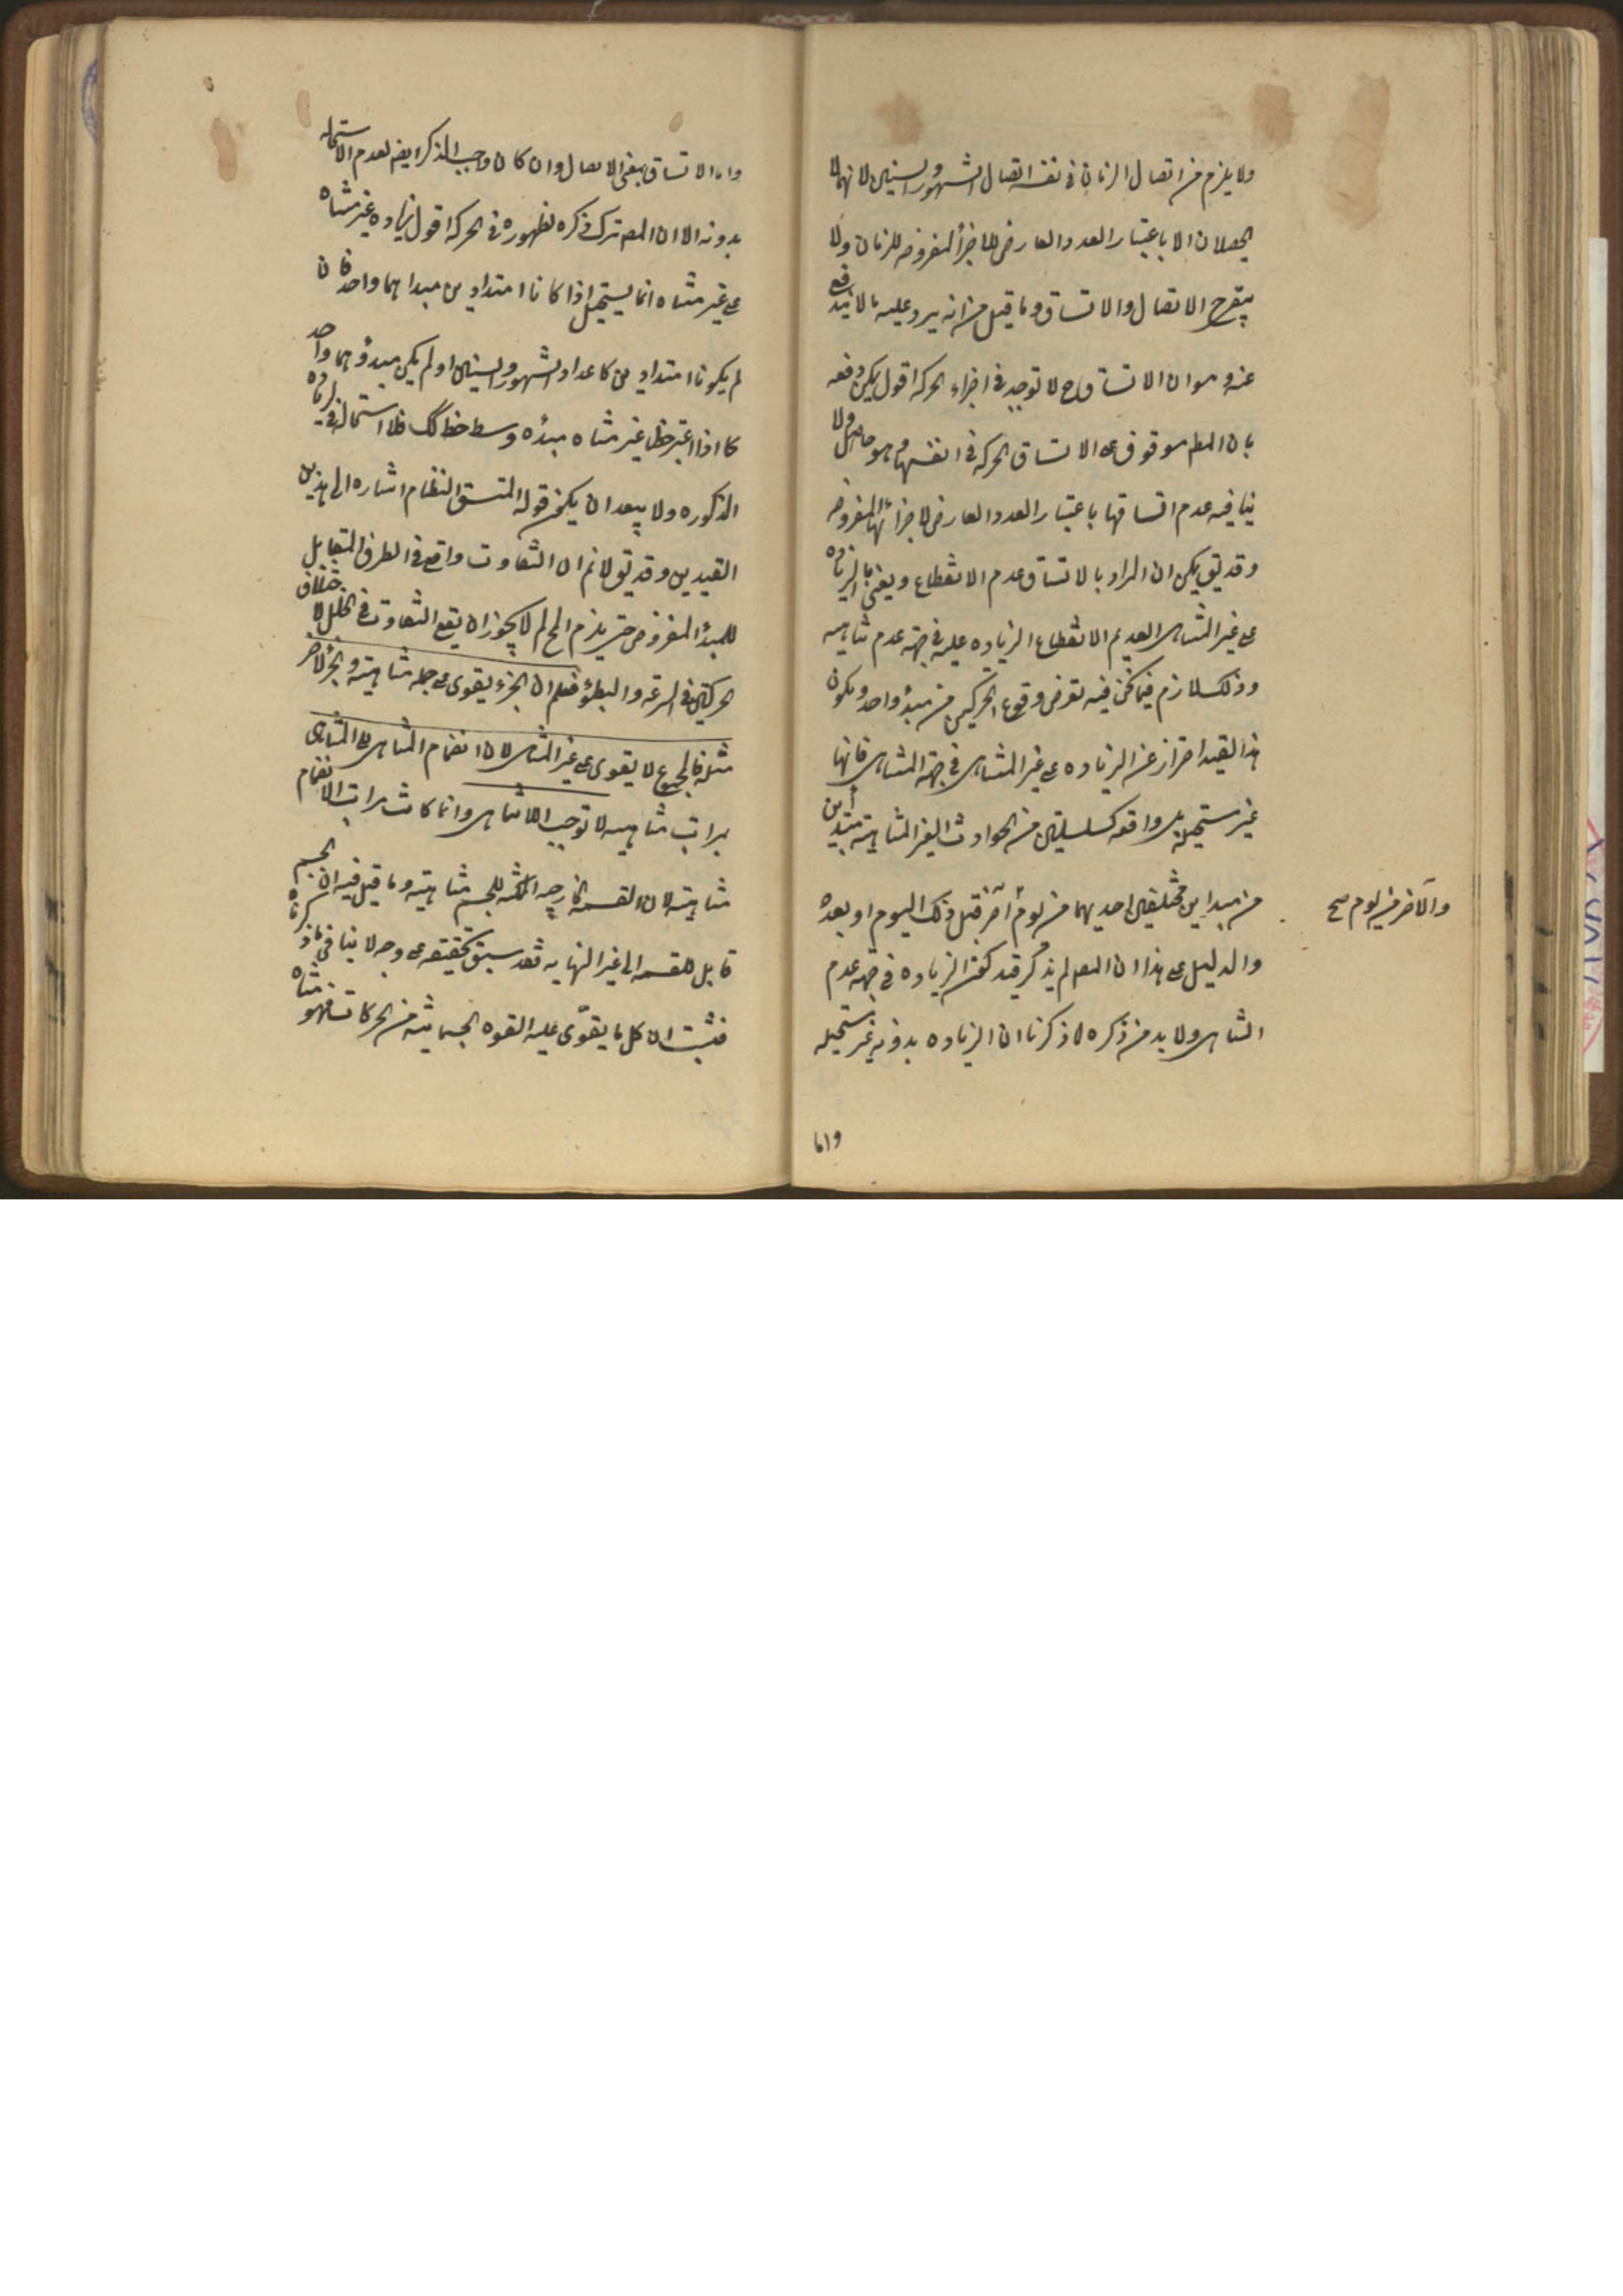 ولا يلزم من اتصال الزمان في نفسه اتصال الشهور والسنين لانهما لا
يحصلان الا باعتبار العدد العارض للاجزأ المفروضه للزمان ولا
يتوح الاتصال والاتساق وما قيل من انه يرد عليه ما لا يندفع
عنه وهو ان الاتساق ح لا توجد في اجزاء الحركه اقول يمكن دفعه
بان المط موقوف على الاتساق الحركه في انفسها وهو حاصل ولا
ينافيه عدم اتساقها باعتبار العدد العارض لاجزائها المفروضه
وقد يق يمكن ان المراد بالاتساق عدم الانقطاع ويعنى بالزياده
على غير المتناهى العديم الانقطاع الزياده عليه في جهة عدم تناهيه
وذلك لازم فيما نحن فيه تعرض وقوع الحركتين من مبدؤ واحد ويكون
هذا القيد احتراز عن الزياده على غير المتناهى في جهة المتناهى فانها
غير مستحيله بل واقعه كسلسلتين من الحوادث الغير المتناهيه مبتدأتين
من مبداين مختلفين احديهما من يوم آخر قبل ذلك اليوم او بعده
والآخر من يوم صح
والدليل على هذا ان المص لم يذكر قيد كون الزياده في جهه عدم
التناهى ولا بد من ذكره لما ذكرنا ان الزياده بدونه غير مستحيله
واما
واما الاتساق بمعنى الاتصال وان كان واجب الذكر ايض لعدم الاستحاله
بدونه الا ان المص ترك ذكره لظهوره في الحركه اقول زياده غير متناه
على غير متناه انما يستحيل اذا كانا امتدادين مبداهما واحد فان
لم يكونا امتدادين كاعداد الشهور والسنين او لم يكن مبدؤهما واحد
كما اذا اعتبر خط غير متناه مبدؤه وسط خط كك فلا استحاله في الزياده
المذكوره ولا يبعد ان يكون قوله المتسق النظام اشاره الى هذين
القيدين وقد يق لا نم ان التفاوت واقع في الطرف المقابل
للمبدأ المفروض حتى يلزم المح لم لا يجوز ان يقع التفاوت في الخلل لاختلاف
الحركتين في السرعه والبطؤ فعلم ان الجزء يقوى على جمله متناهيه والجزء الآخر
مثله فالمجموع لا يقوى على غير المتناهى لان انضمام المتناهى الى المتناهى
بمراتب متناهيه لا توجب اللاتناهى وانما كانت مراتب الانضمام
متناهيه لان القسمه الخارجيه الممكنه للجسم متناهيه وما قيل فيه ان الجسم
قابل للقسمه الى غير النهايه فقد سبق تحقيقه على وجه لا ينافي ما ذكرناه
فثبت ان كل ما يقوّى عليه القوه الجسمانيه من الحركات فهو متناه